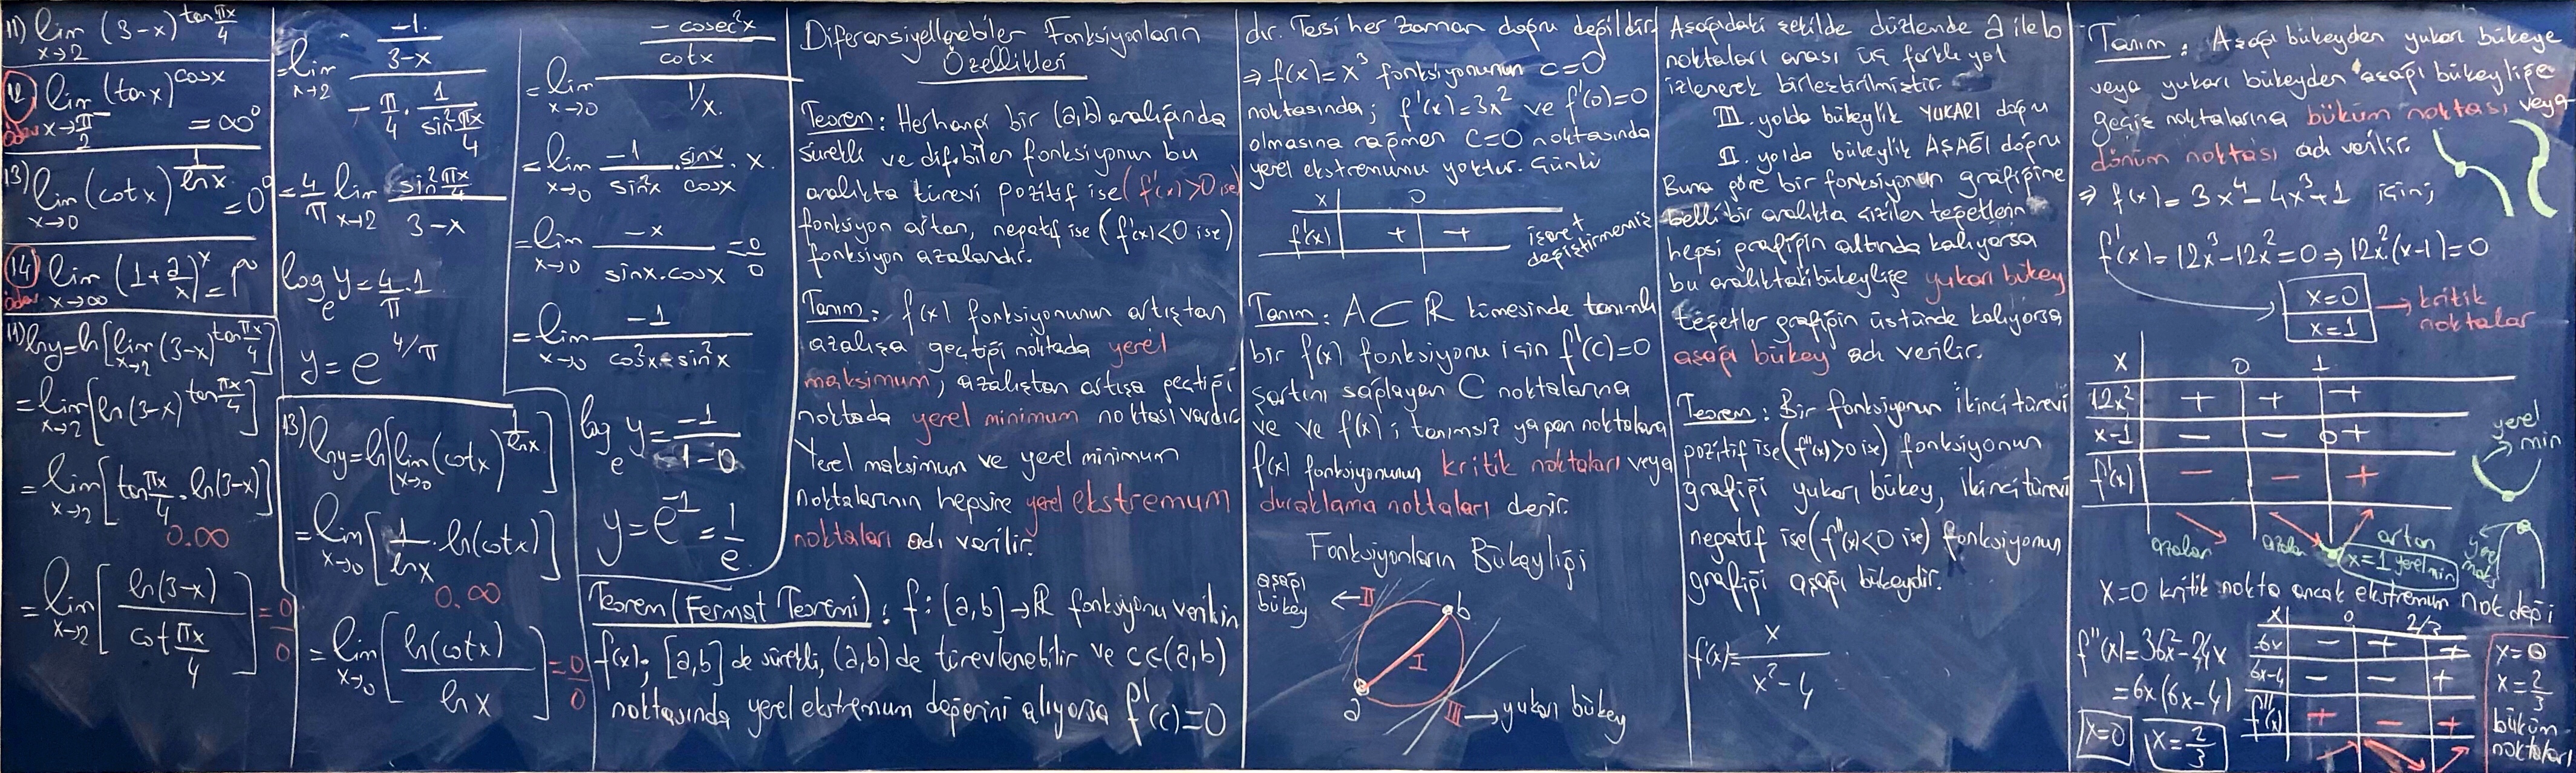 11) lim x→2 (3-x)^tan πx/4
12) lim x→π/2⁻ (tanx)^cosx = ∞⁰
ödev
13) lim x→0 (cotx)^1/lnx = 0⁰
14) lim x→∞ (1+a/x)^x = 1^∞
ödev
11) lny=ln[lim x→2 (3-x)^tan πx/4]
= lim x→2 [ln(3-x)^tan πx/4]
= lim x→2 [tan πx/4 . ln(3-x)]
0.∞
= lim x→2 [ln(3-x) / cot πx/4] = 0/0
= lim x→2 (-1. / 3-x) / (-π/4 . 1/sin² πx/4)
= 4/π lim x→2 sin² πx/4 / 3-x
log_e y = 4/π . 1
y = e^4/π
13) lny=ln[lim x→0 (cotx)^1/lnx]
= lim x→0 [1/lnx . ln(cotx)]
0.∞
= lim x→0 [ln(cotx) / lnx] = 0/0
= lim x→0 (-cosec²x / cotx) / (1/x.)
= lim x→0 -1/sin²x . sinx/cosx . x.
= lim x→0 -x / sinx.cosx = 0/0
= lim x→0 -1 / cos²x-sin²x
log_e y = -1 / 1-0
y = e^-1 = 1/e.
Diferansiyellenebiler Fonksiyonların
Özellikleri
Teorem: Herhangi bir (a,b) aralığında
sürekli ve dif.bilen fonksiyonun bu
aralıkta türevi pozitif ise (f'(x)>0 ise)
fonksiyon artan, negatif ise (f'(x)<0 ise)
fonksiyon azalandır.
Tanım: f(x) fonksiyonunun artıştan
azalışa geçtiği noktada yerel
maksimum, azalıştan artışa geçtiği
noktada yerel minimum noktası vardır.
Yerel maksimum ve yerel minimum
noktalarının hepsine yerel ekstremum
noktaları adı verilir.
Teorem (Fermat Teoremi): f:[a,b]→R fonksiyonu verilsin
f(x); [a,b] de sürekli, (a,b) de türevlenebilir ve c∈(a,b)
noktasında yerel ekstremum değerini alıyorsa f'(c)=0
dır. Tersi her zaman doğru değildir.
⇒ f(x)=x³ fonksiyonunun c=0
noktasında; f'(x)=3x² ve f'(0)=0
olmasına rağmen c=0 noktasında
yerel ekstremumu yoktur. Çünkü
x 0
f'(x) + + işaret
değiştirmemiş
Tanım: A⊂R kümesinde tanımlı
bir f(x) fonksiyonu için f'(c)=0
şartını sağlayan C noktalarına
ve ve f(x)'i tanımsız yapan noktalara
f(x) fonksiyonunun kritik noktaları veya
duraklama noktaları denir.
Fonksiyonların Bükeyliği
aşağı
bükey ← II
b
I
a
III → yukarı bükey
Aşağıdaki şekilde düzlemde a ile b
noktaları arası üç farklı yol
izlenerek birleştirilmiştir.
III. yolda bükeylik YUKARI doğru
II. yolda bükeylik AŞAĞI doğru
Buna göre bir fonksiyonun grafiğine
belli bir aralıkta çizilen teğetlerin
hepsi grafiğin altında kalıyorsa
bu aralıktaki bükeyliğe yukarı bükey
teğetler grafiğin üstünde kalıyorsa
aşağı bükey adı verilir.
Teorem: Bir fonksiyonun ikinci türevi
pozitif ise (f''(x)>0 ise) fonksiyonun
grafiği yukarı bükey, ikinci türevi
negatif ise (f''(x)<0 ise) fonksiyonun
grafiği aşağı bükeydir.
f'(x)= x / x²-4
Tanım: Aşağı bükeyden yukarı bükeye
veya yukarı bükeyden aşağı bükeyliğe
geçiş noktalarına büküm noktası veya
dönüm noktası adı verilir.
⇒ f(x)=3x⁴-4x³+1 için;
f'(x)=12x³-12x²=0 ⇒ 12x².(x-1)=0
x=0
x=1 → kritik
noktalar
x 0 1
12x² + + +
x-1 - - 0 +
f'(x) - - +
azalan azalan artan
x=1 yerel min
yerel
min
yerel
maks
x=0 kritik nokta ancak ekstremum nok değil
f''(x)=36x²-24x
=6x(6x-4)
x=0 x=2/3
x 0 2/3
6x - + +
6x-4 - - +
f''(x) + - +
x=0
x=2/3
büküm
noktaları